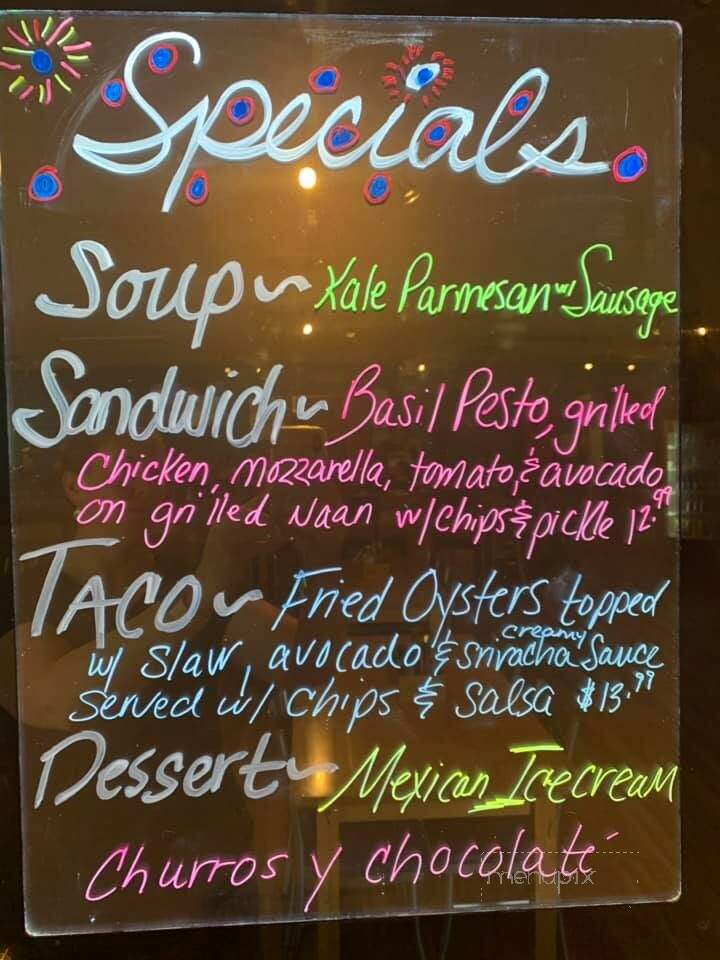 Specials
Soup~ Kale Parmesan w/ Sausage
Sandwich~ Basil Pesto, grilled
Chicken, mozzarella, tomato, & avocado
on grilled Naan w/chips & pickle 12.99
TACO~ Fried Oysters topped
w/ Slaw, avocado & creamy Sriracha Sauce
Served w/ chips & Salsa $13.99
Dessert~ Mexican Icecream
Churros y chocolaté
menupix